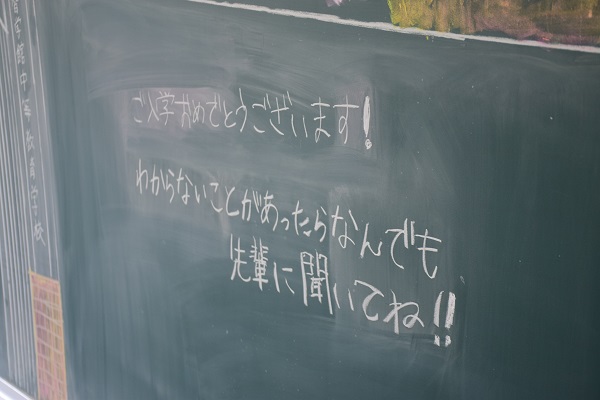 ご入学おめでとうございます!
わからないことがあったらなんでも
先輩に聞いてね!!